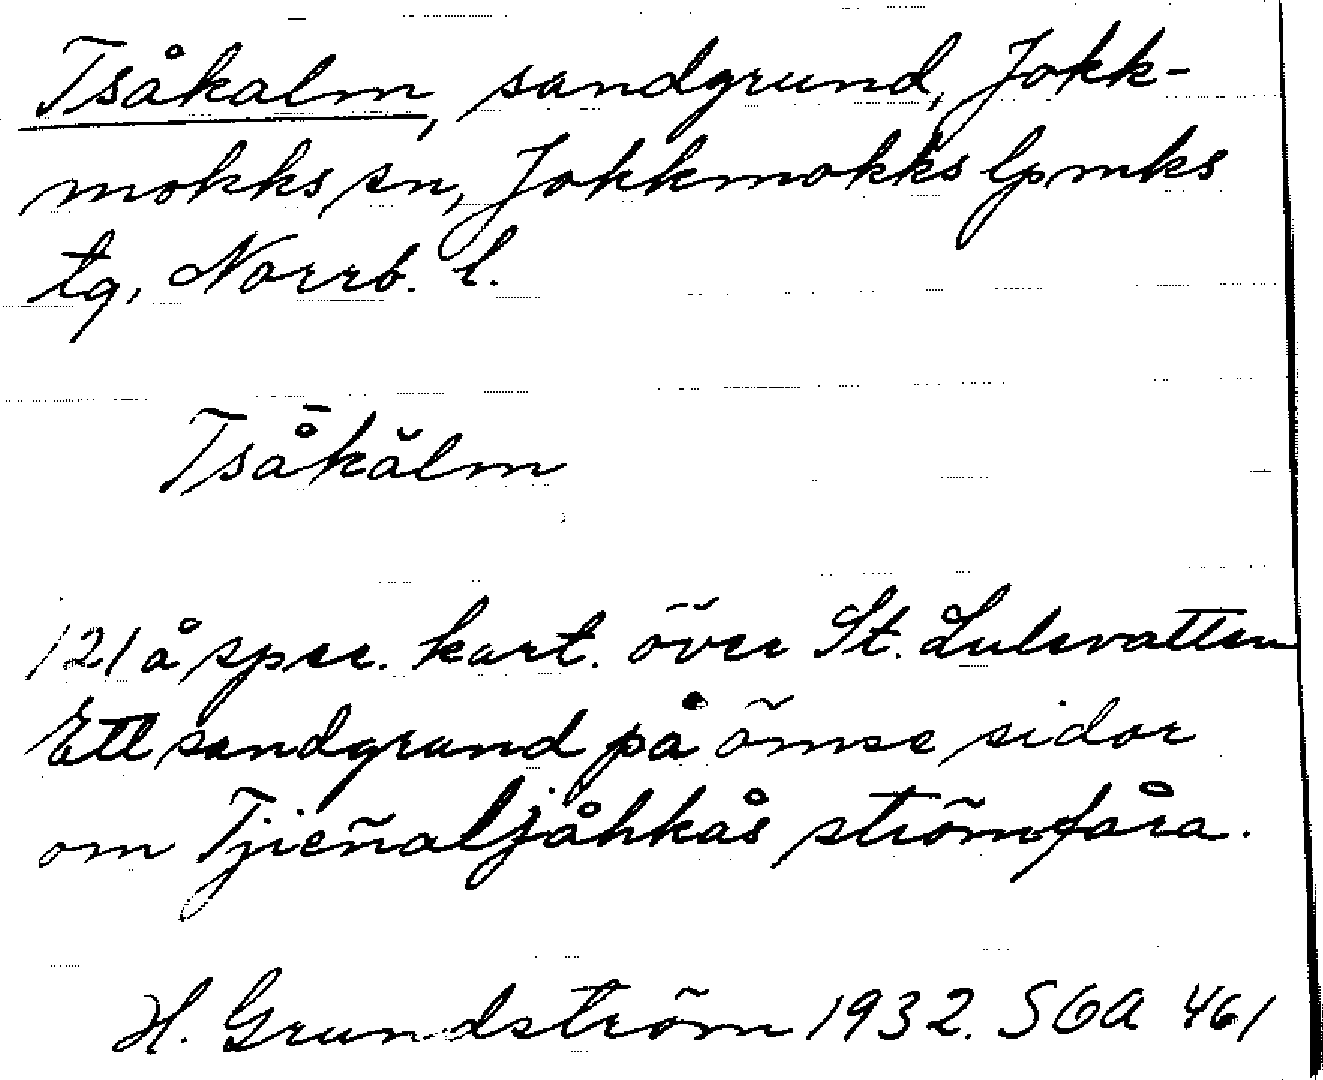 Tsåkalm, sandgrund, Jokk-
mokks sn, Jokkmokks lpmks
tg, Norrb. l.
Tså̄kălm
121 å spec. kart. över St. Lulevatten
Ett sandgrund på ömse sidor
om Tjieñaljåhkås strömfåra.
H. Grundström 1932. SOA 461